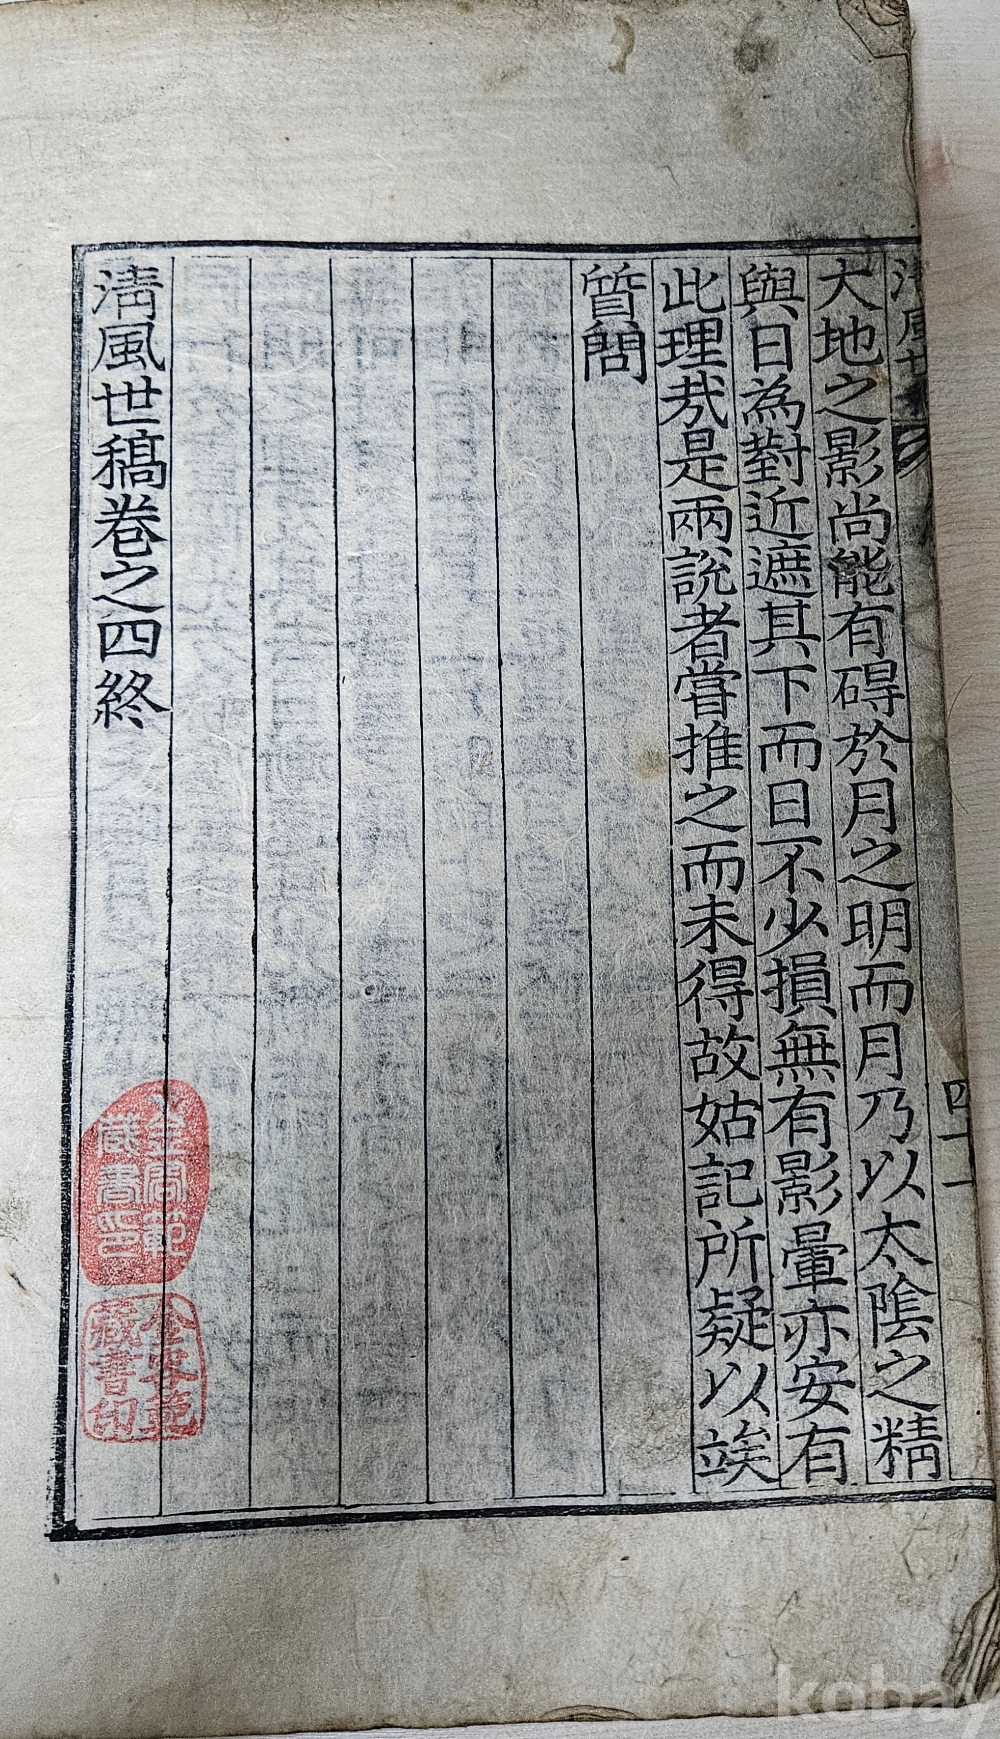 大地之影尚能有碍於月之明而月乃以太陰之精
與日為對近遮其下而日不少損無有影暈亦安有
此理㢤是兩說者嘗推之而未得故姑記所疑以竢
質問
清風世稿卷之四終
四十一
藏書印
藏書印
kobay